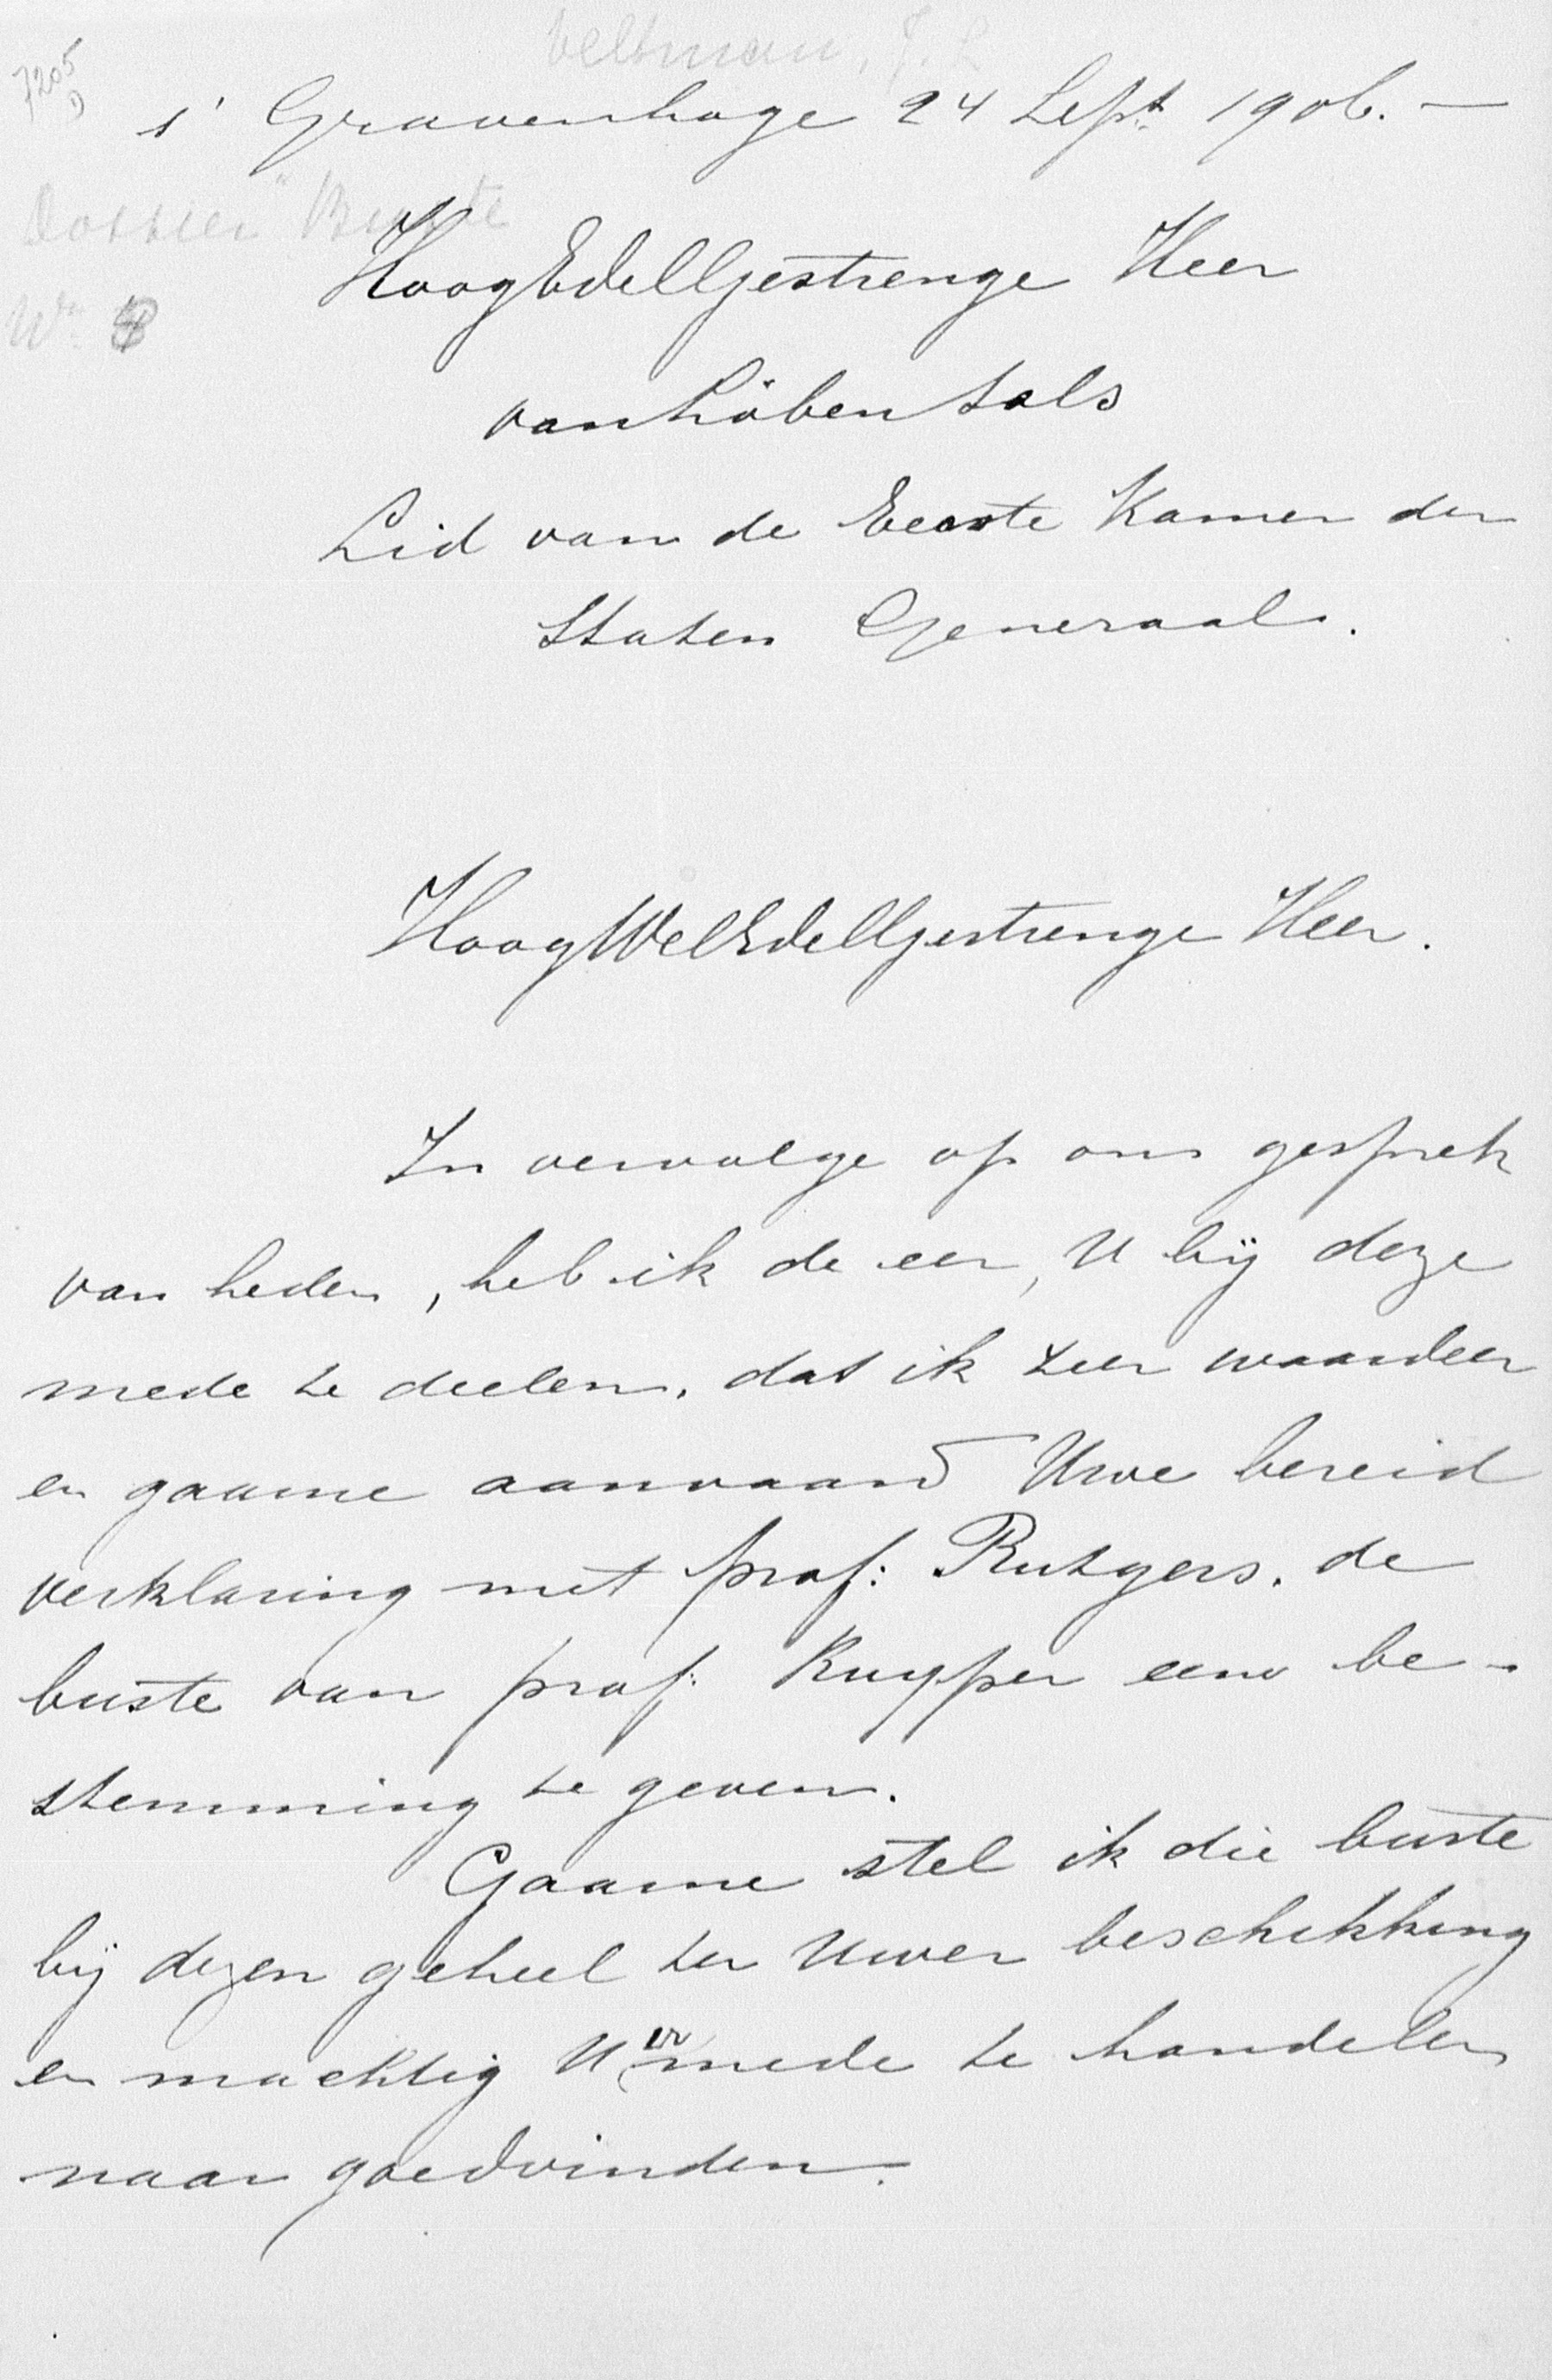 Veltman, J. L
7205
D
s' Gravenhage 24 Sept. 1906. —
Dossier "Buste
HoogEdelGestrenge Heer
van Löben Sels
Lid van de Eerste Kamer der
Staten Generaal.
HoogWelEdelGestrenge Heer.
In vervolge op ons gesprek
van heden, heb ik de eer, U bij deze
mede te deelen, dat ik zeer waardeer
en gaarne aanvaard Uwe bereid
verklaring met prof: Rutgers, de
buste van prof: Kuyper eene be-
stemming te geven.
Gaarne stel ik die buste
bij dezen geheel ter Uwer beschikking
en machtig U er mede te handelen
naar goedvinden.